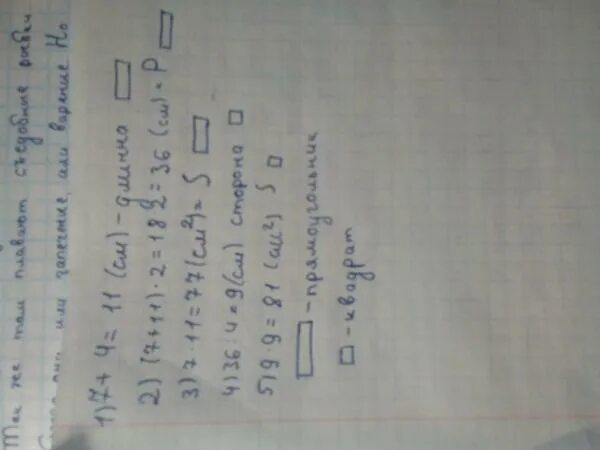 Так же там плавают съедобные рыбки
или запечение, али варение Но
1) 7 + 4 = 11 (см) - длинна ▭
2) (7+11) · 2 = 18 · 2 = 36 (см) = P ▭
3) 7 · 11 = 77 (см²) = S ▭
4) 36 : 4 = 9 (см) сторона □
5) 9 · 9 = 81 (см²) S □
▭ - прямоугольник
□ - квадрат